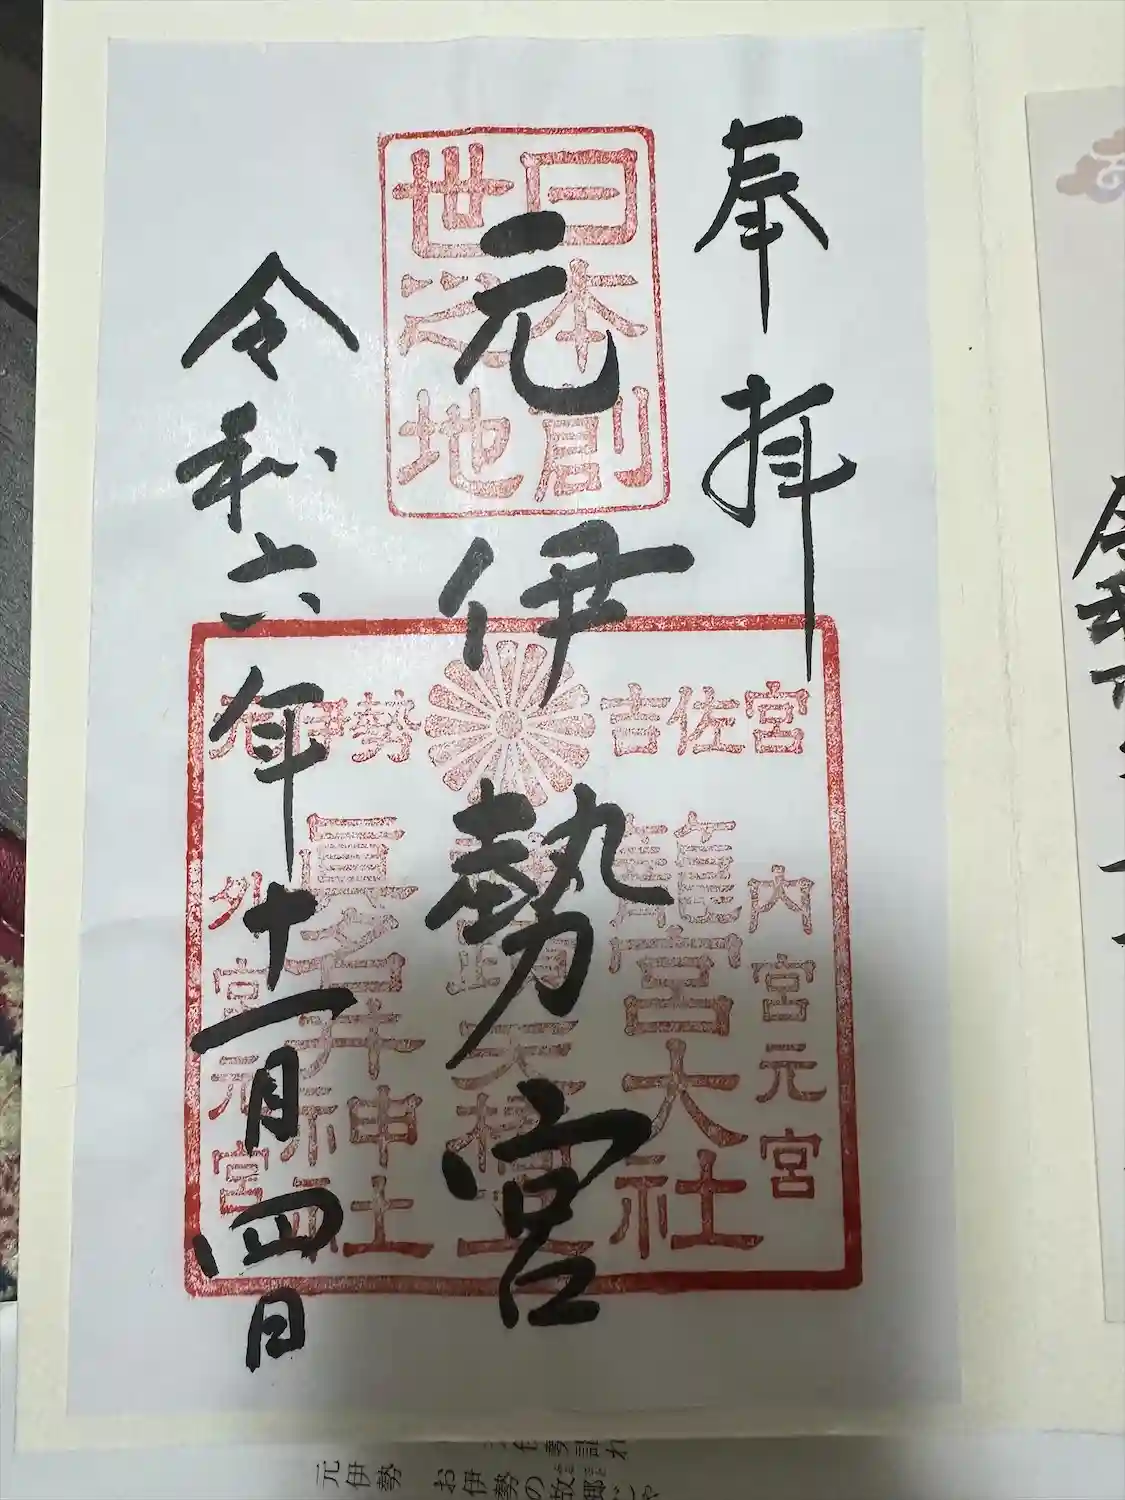 奉拝
日本創
世之地
元伊勢宮
令和六年十一月四日
元伊勢 吉佐宮
内宮元宮
龍宮大社
眞名井神社
外宮元宮
元伊勢 お伊勢の故郷